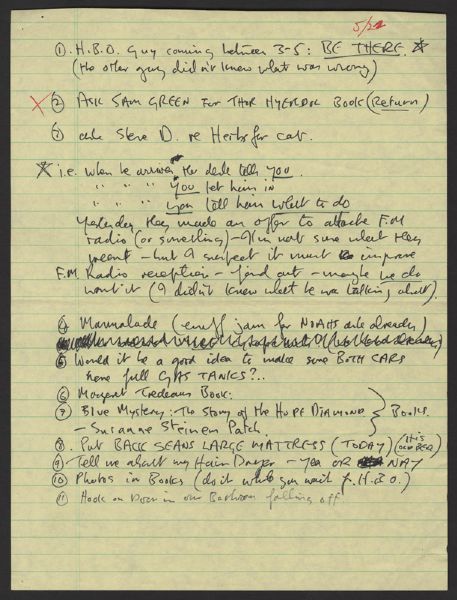 5/22
① H.B.O. Guy coming between 3-5: BE THERE ☆
(The other guy didn't know what was wrong)
X ② ASK SAM GREEN FOR THOR HYERDAL BOOK (Return)
③ ask Steve D. re Herbs for cat.
☆ i.e. when he arrives the desk tells you.
" " " you let him in
" " " you tell him what to do
Yesterday they made an offer to attache F.M
radio (or something) - I'm not sure what they
meant - but I suspect it must improve
F.M. Radio reception - find out - maybe we do
want it (I didn't know what he was talking about).
④ Marmalade (enuff jam for NOAHS ark already)
⑤ Would it be a good idea to make sure BOTH CARS
have full GAS TANKS?..
⑥ Margent Book:
⑦ Blue Mystery: The Story of the HOPE DIAMOND } Books.
- Susanne Steinem Patch.
⑧ Put BACK SEANS LARGE MATTRESS (TODAY) (HIS OLD BED)
⑨ Tell me about my Hair Dryer - yea OR NAY
⑩ Photos in Books (do it while you wait f. H.B.O.)
⑪ Hook on Door in our Bathroom falling off